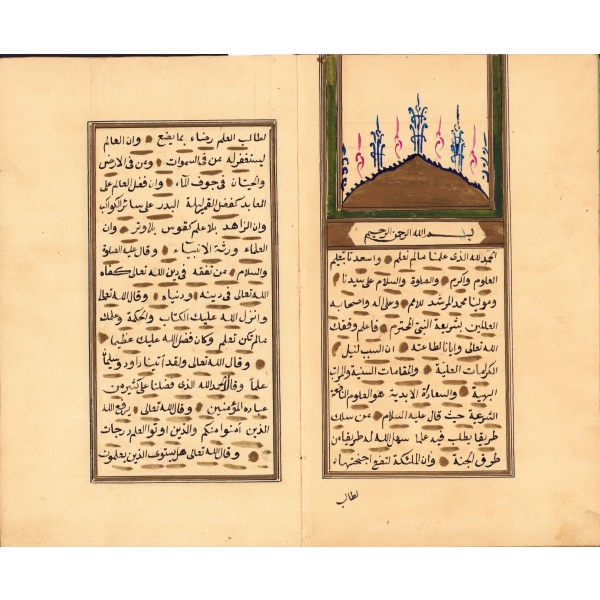 بسم الله الرحمن الرحيم
الحمد لله الذي علمنا مالم نعلم واسعدنا بتعليم
العلوم واكرم والصلوة والسلام على سيدنا
ومولينا محمد المرشد للامم وعلى اله واصحابه
العالمين بشريعة النبى المحترم فاعلم وفقك
الله تعالى وايانا لطاعته ان السبب لنيل
الكرامات العلية والمقامات السنية والمراتب
البهية والسعادة الابدية هو العلوم النافعة
الشرعية حيث قال عليه السلام من سلك
طريقا يطلب فيه علما سهل الله له طريقا من
طرق الجنة وان الملئكة لتضع اجنحتها
لطالب
لطالب العلم رضاء بما يضع وان العالم
ليستغفر له من فى السموات ومن فى الارض
والحيتان فى جوف الماء وان فضل العالم على
العابد كفضل القمر ليلة البدر على سائر الكواكب
وان الزاهد بلا علم كقوس بلا وتر وان
العلماء ورثة الانبياء وقال عليه الصلوة
والسلام من تفقه فى دين الله تعالى كفاه
الله تعالى فى دينه ودنياه وقال الله تعالى
وانزل الله عليك الكتاب والحكمة وعلمك
مالم تكن تعلم وكان فضل الله عليك عظيما
وقال الله تعالى ولقد اتينا داود وسليمان
علما وقالا الحمد لله الذى فضلنا على كثير من
عباده المؤمنين وقال الله تعالى يرفع الله
الذين امنوا منكم والذين اوتوا العلم درجات
وقال الله تعالى هل يستوى الذين يعلمون